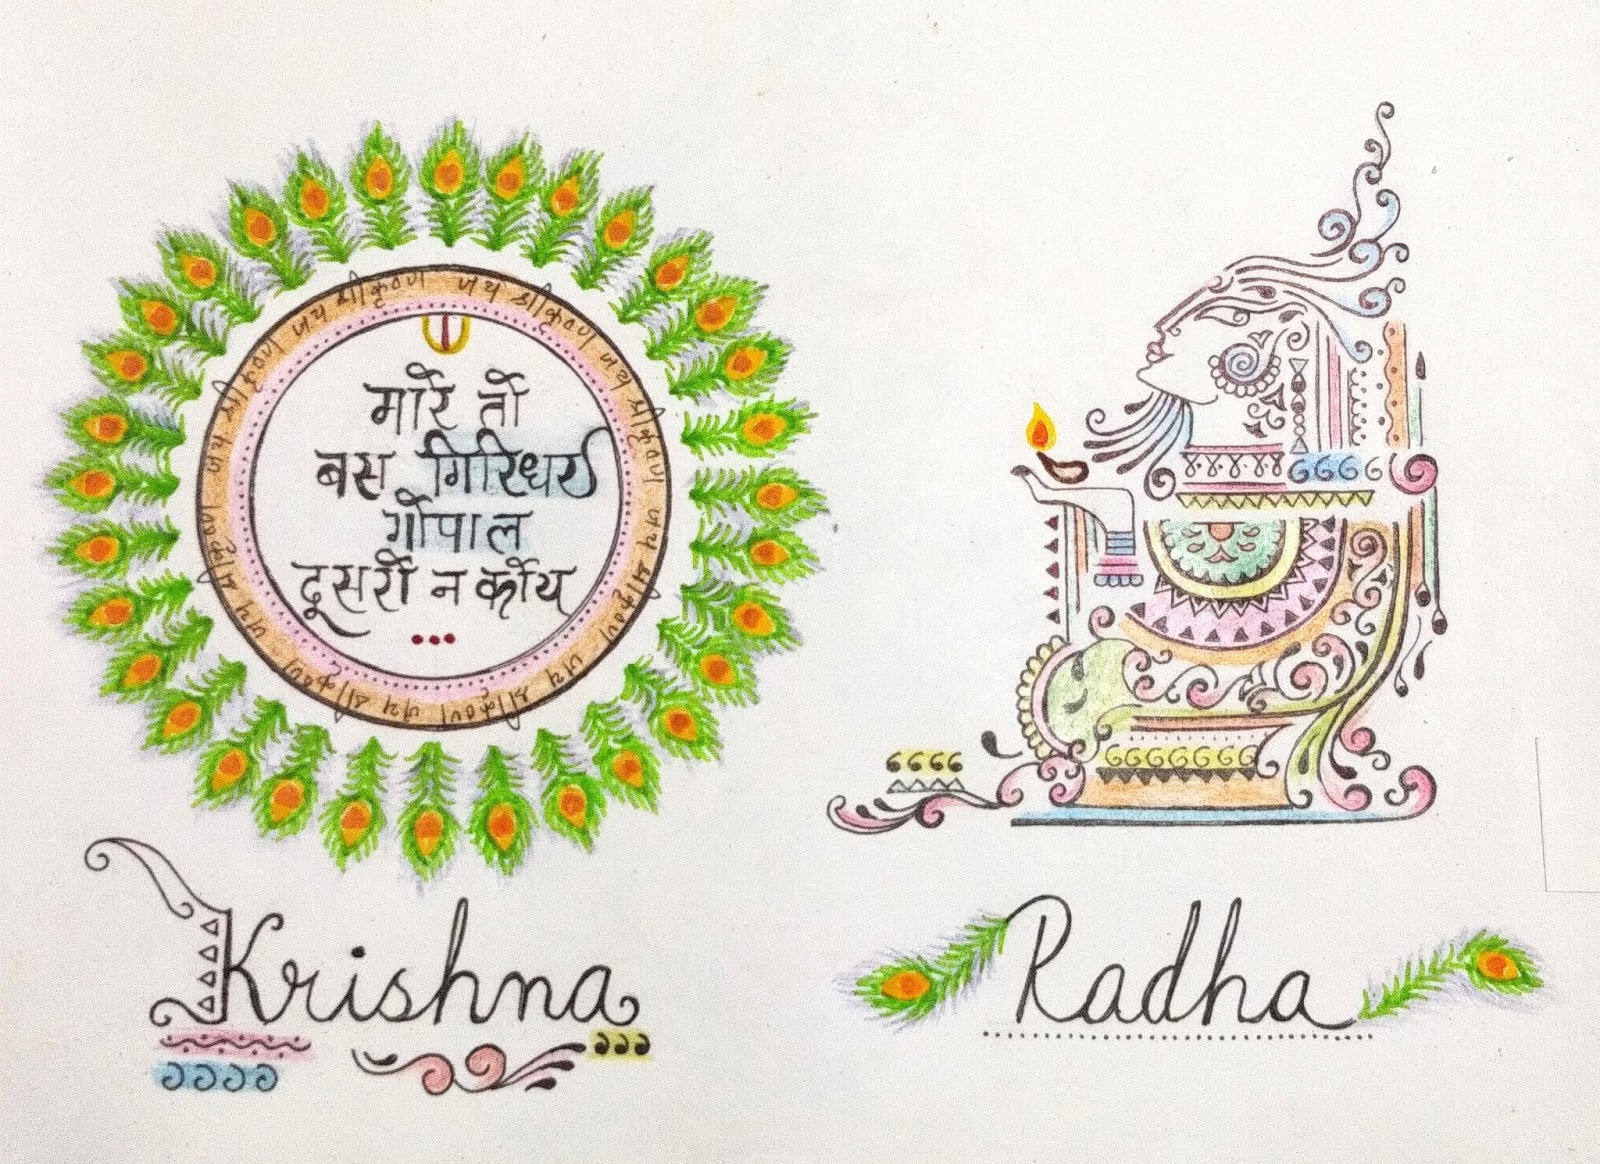 जय श्रीकृष्ण जय श्रीकृष्ण जय श्रीकृष्ण जय श्रीकृष्ण जय श्रीकृष्ण जय श्रीकृष्ण जय श्रीकृष्ण जय श्रीकृष्ण
मारे तो
बस गिरिधर
गोपाल
दूसरो न कोय
...
Krishna
Radha